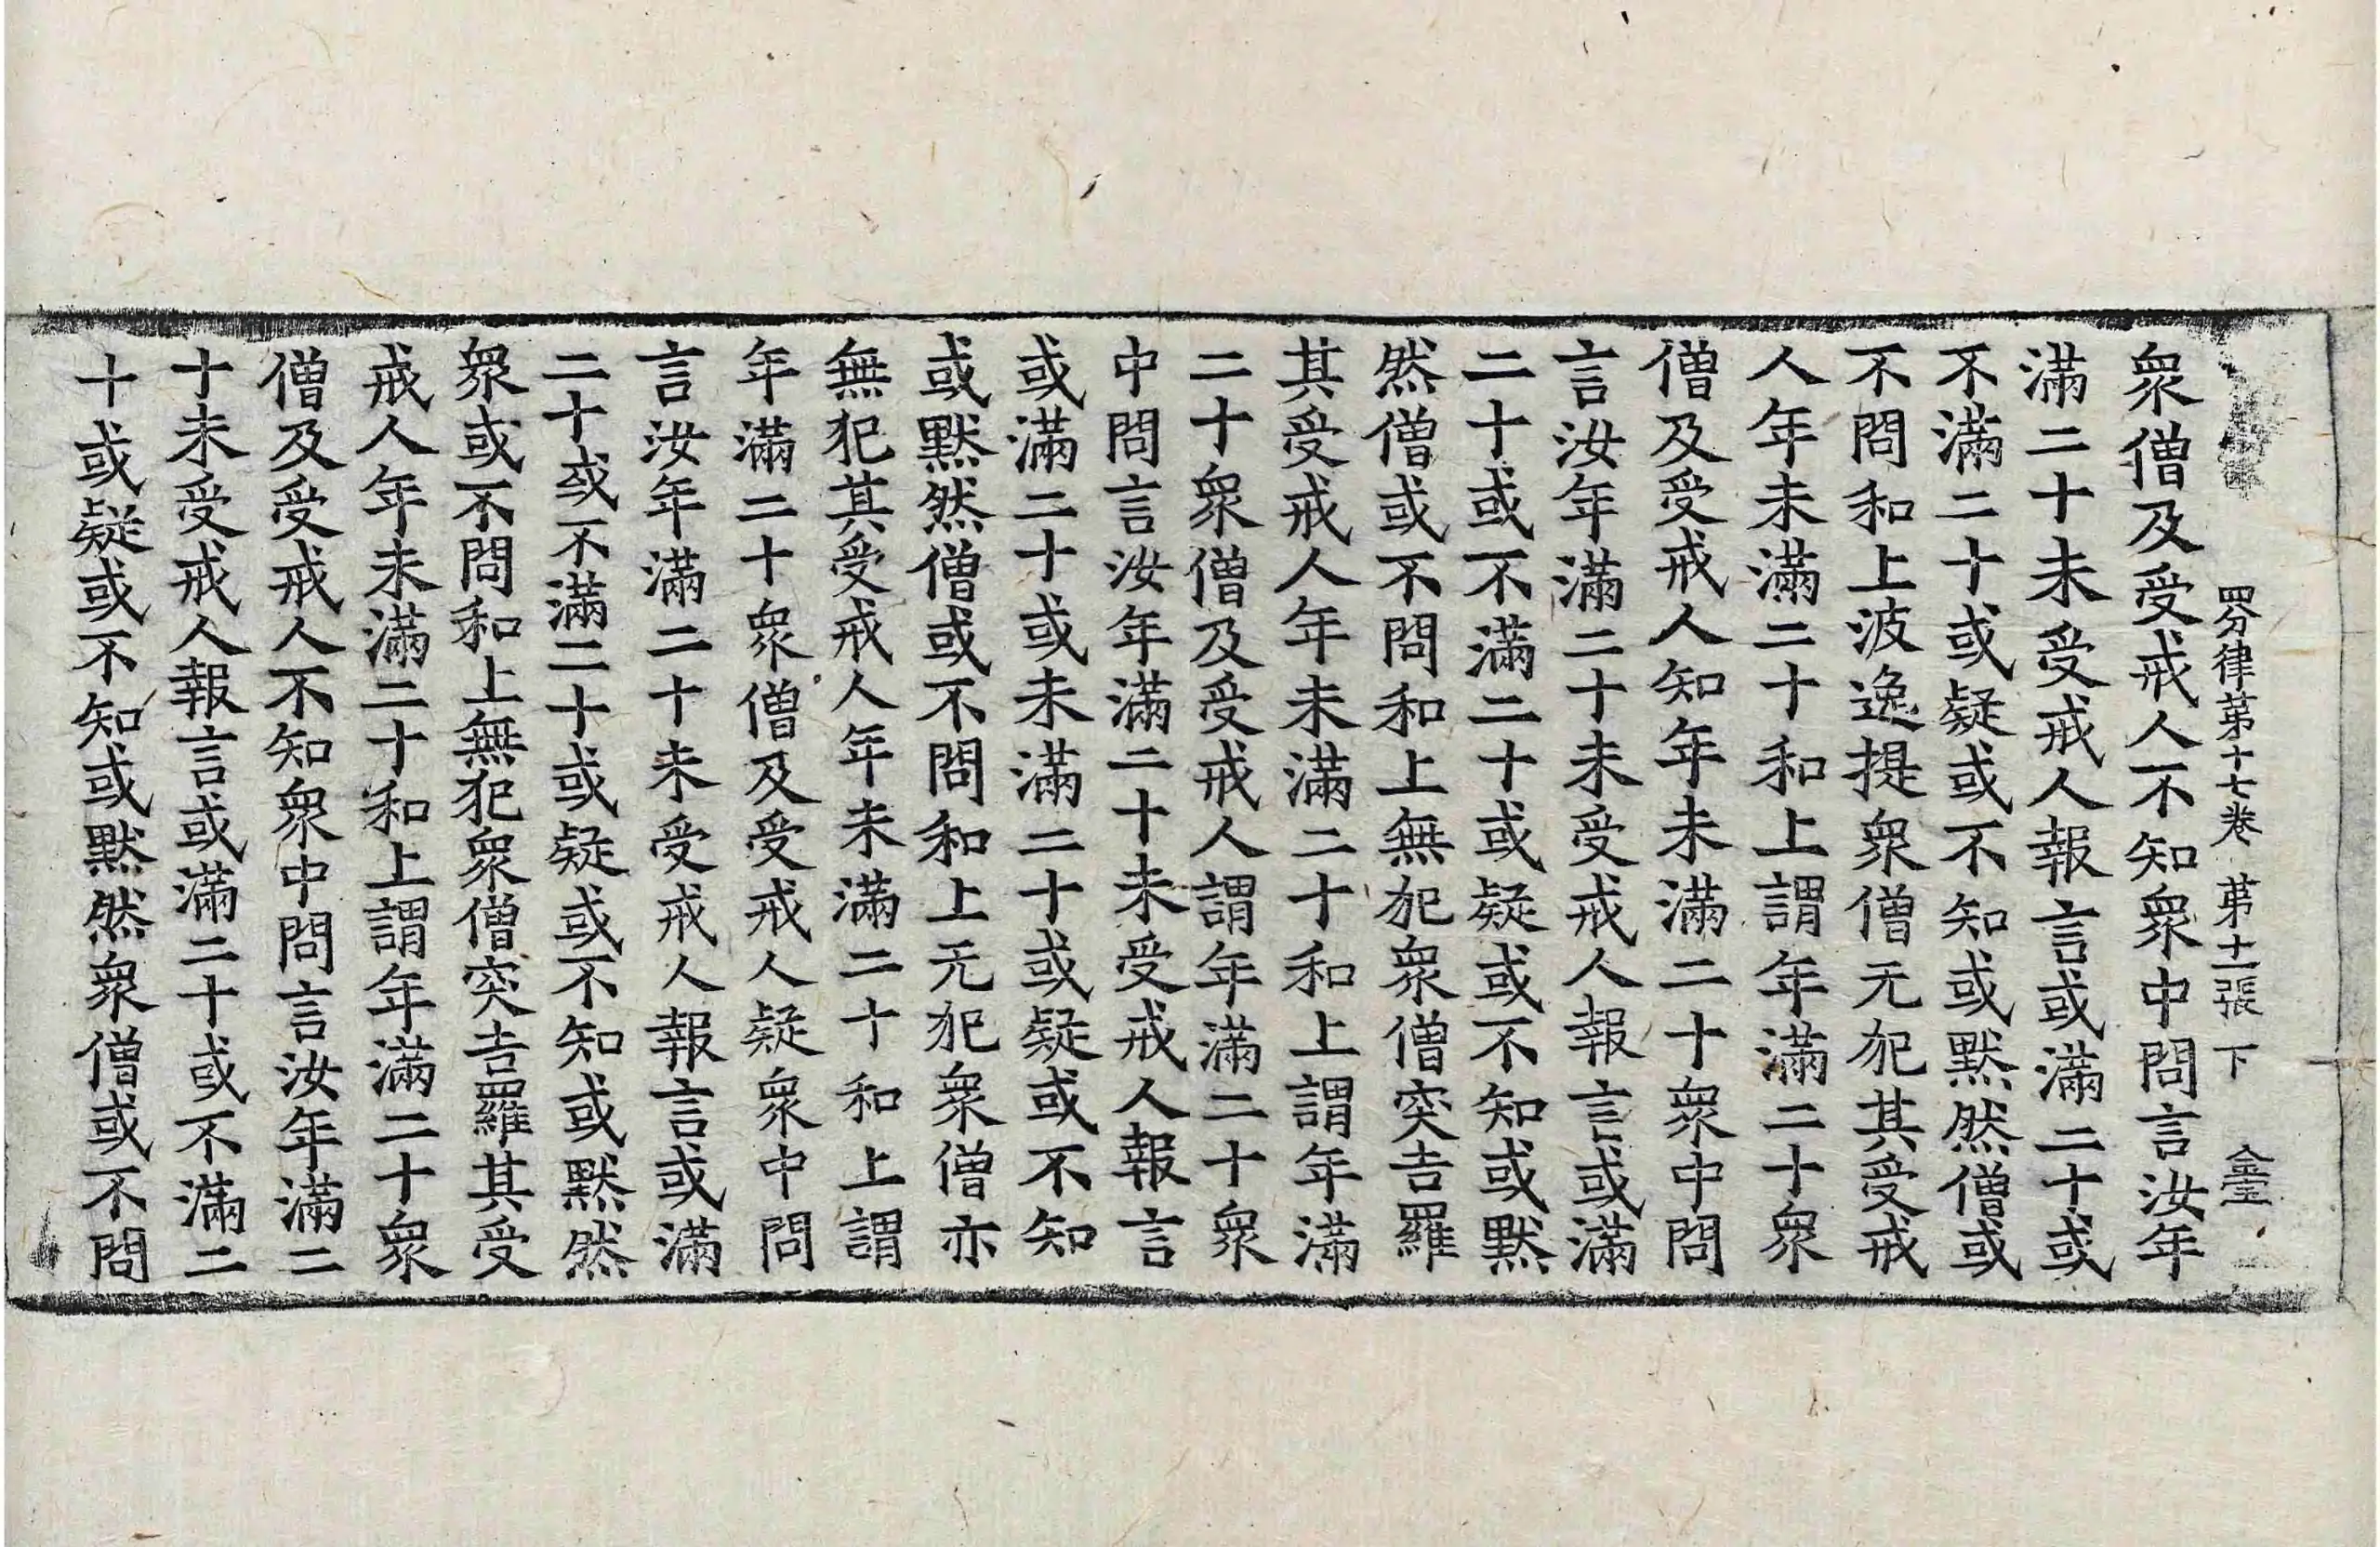 四分律第十七卷 第十一張 下
衆僧及受戒人不知衆中問言汝年
滿二十未受戒人報言或滿二十或
不滿二十或疑或不知或默然僧或
不問和上波逸提衆僧无犯其受戒
人年未滿二十和上謂年滿二十衆
僧及受戒人知年未滿二十衆中問
言汝年滿二十未受戒人報言或滿
二十或不滿二十或疑或不知或默
然僧或不問和上無犯衆僧突吉羅
其受戒人年未滿二十和上謂年滿
二十衆僧及受戒人謂年滿二十衆
中問言汝年滿二十未受戒人報言
或滿二十或未滿二十或疑或不知
或默然僧或不問和上无犯衆僧亦
無犯其受戒人年未滿二十和上謂
年滿二十衆僧及受戒人疑衆中問
言汝年滿二十未受戒人報言或滿
二十或不滿二十或疑或不知或默然
衆或不問和上無犯衆僧突吉羅其受
戒人年未滿二十和上謂年滿二十衆
僧及受戒人不知衆中問言汝年滿二
十未受戒人報言或滿二十或不滿二
十或疑或不知或默然衆僧或不問